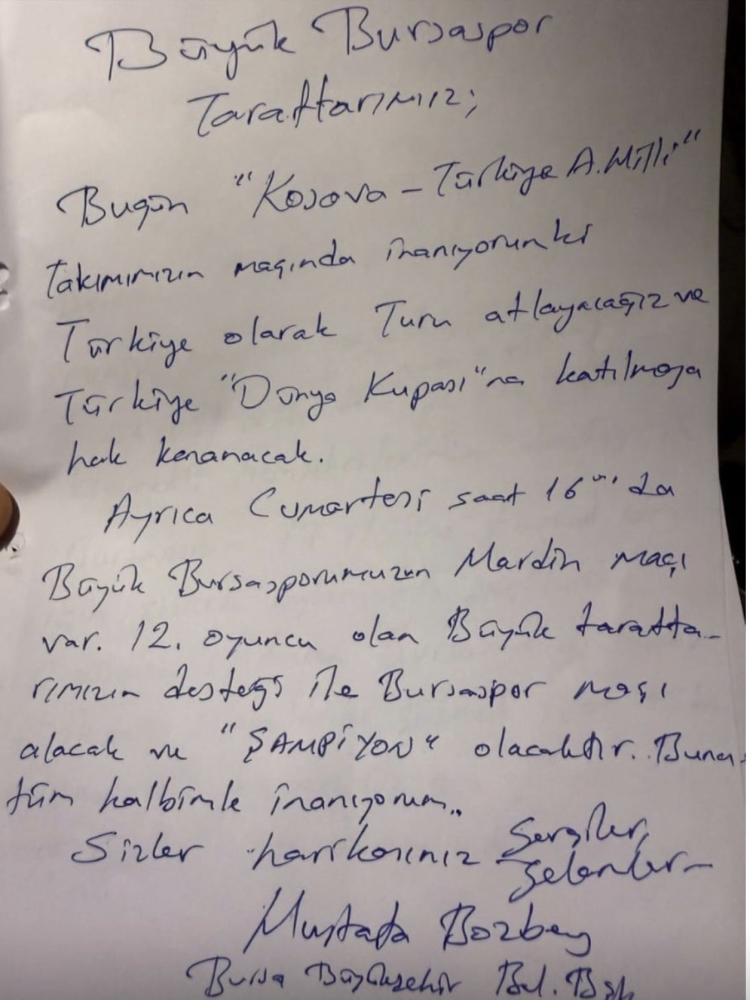 Büyük Bursaspor
Taraftarımız;
Bugün "Kosova - Türkiye A. Milli"
takımımızın maçında inanıyorumki
Türkiye olarak Turu atlayacağız ve
Türkiye "Dünya Kupası"na katılmaya
hak kazanacak.
Ayrıca Cumartesi saat 16⁰⁰'da
Büyük Bursasporumuzun Mardin maçı
var. 12. oyuncu olan Büyük tarafta-
rımızın desteği ile Bursaspor maçı
alacak ve "ŞAMPİYON" olacaktır. Buna
tüm kalbimle inanıyorum..
Sizler harikasınız Sevgiler,
Selamlar
Mustafa Bozbey
Bursa Büyükşehir Bel. Bşk